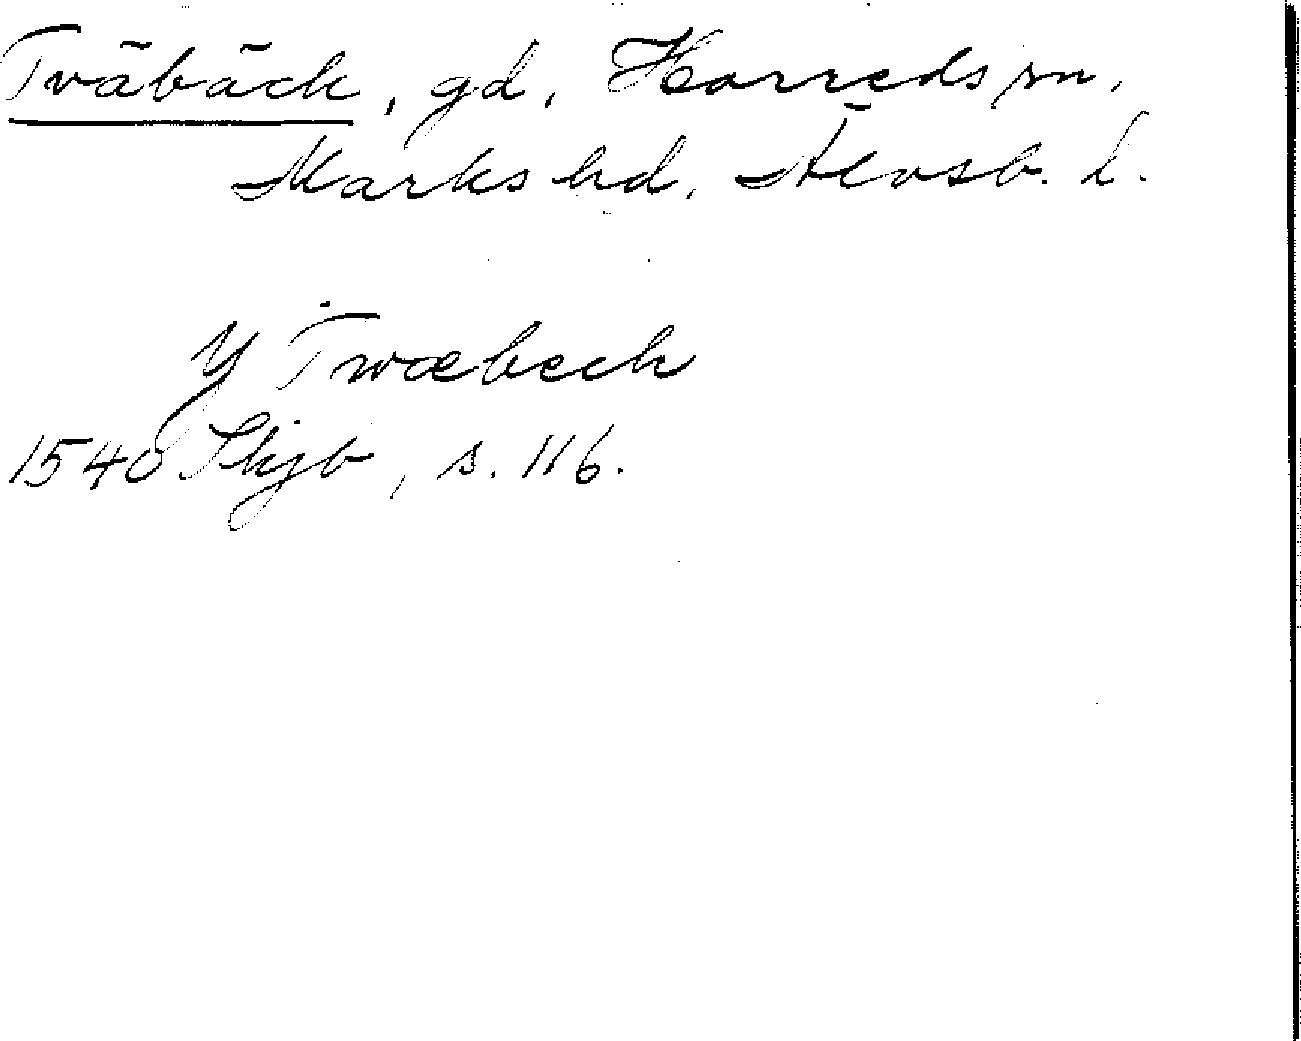 Träbäck, gd, Horreds sn,
Marks hd, Älvsb. l.
Y Twæbeck
1540 Skjb, s. 116.